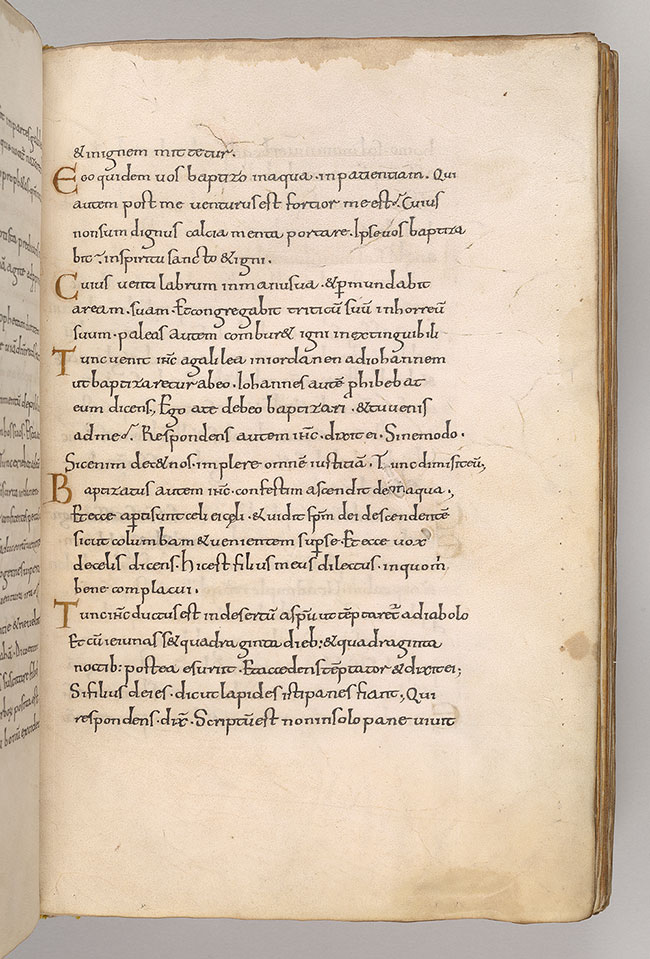 & inignem mittetur.
Eoo quidem uos baptizo inaqua. inpatientiam. Qui
autem post me venturus est fortior me est. Cuius
nonsum dignus calcia menta portare. Ipse uos baptiza
bit. inspiritu sancto & igni.
Cuius uenti labrum inmanu sua. & pmundabit
aream. suam. Et congregabit triticū suū inhorreū
suum. paleas autem combur& igni inextinguibili
Tunc uenit ihc agalilea iniordanen adiohannem
ut baptizaretur abeo. Iohannes autē phibebat
eum dicens., Ego ate debeo baptizari. & tu uenis
adme. Respondens autem ihc. dixit ei. Sinemodo.
Sicenim dec& nos. implere omnē iustitiā. Tunc dimisit eū,
Baptizatus autem ihc. confestim ascendit de aqua.,
Et ecce apti sunt celi ei. & uidit spm dei descendentē
sicut columbam & uenientem supse. Et ecce uox
decelis dicens. hic est filius meus dilectus. inquo m
bene complacui.
Tunc ihc ductus est indesertū aspu ut tēptaret adiabolo
Et cū ieiunass& quadraginta dieb: & quadraginta
noctib: postea esuriit. Et accedens tēptator & dixit ei;
Si filius dei es. dic ut lapides isti panes fiant., Qui
respondens. dix. Scriptū est noninsolo pane uiuit